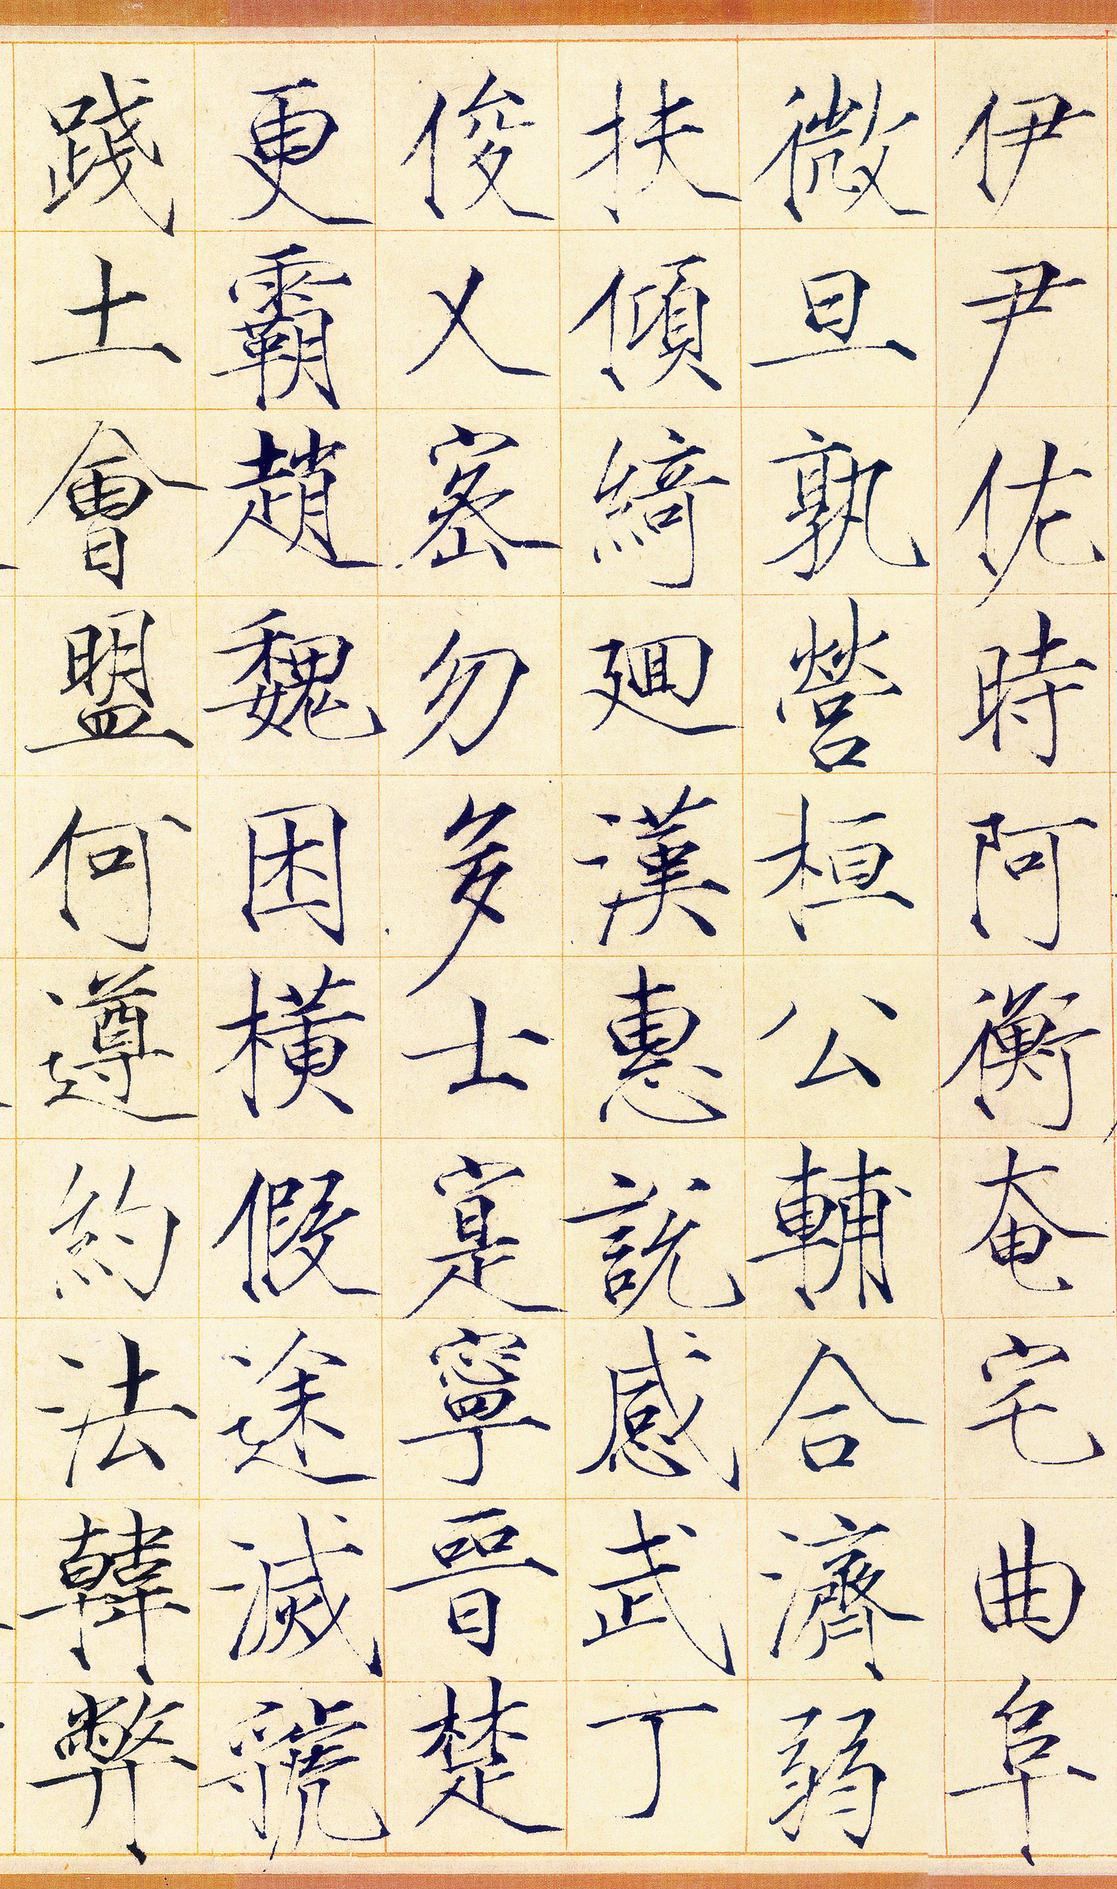 伊尹佐時阿衡奄宅曲阜
微旦孰營桓公輔合濟弱
扶傾綺迴漢惠說感武丁
俊乂密勿多士寔寧晉楚
更霸趙魏困橫假途滅虢
踐土會盟何遵約法韓弊